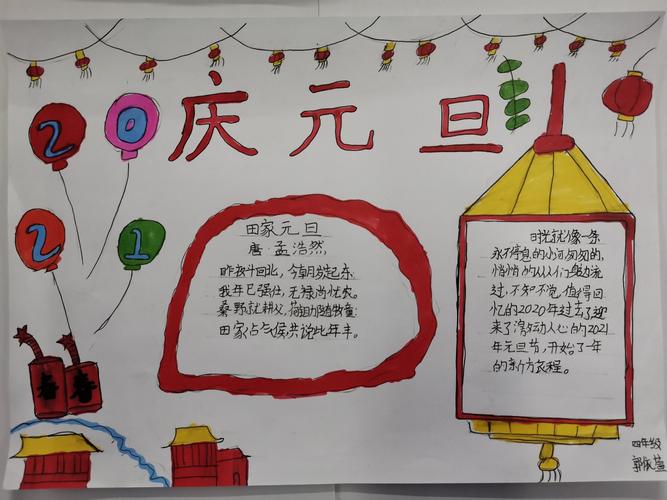 庆元旦
20
21
田家元旦
唐·孟浩然
昨夜斗回北,今朝岁起东
我年已强仕,无禄尚忧农。
桑野就耕父,荷锄随牧童
田家占气候,共说此年丰。
时光就像一条
永不停息的小河匆匆的,
悄悄的从人们身边流
过,不知不觉,值得回
忆的2020年过去了,迎
来了激动人心的2021
年元旦节,开始了一年
的新的旅程。
春
春
四年级